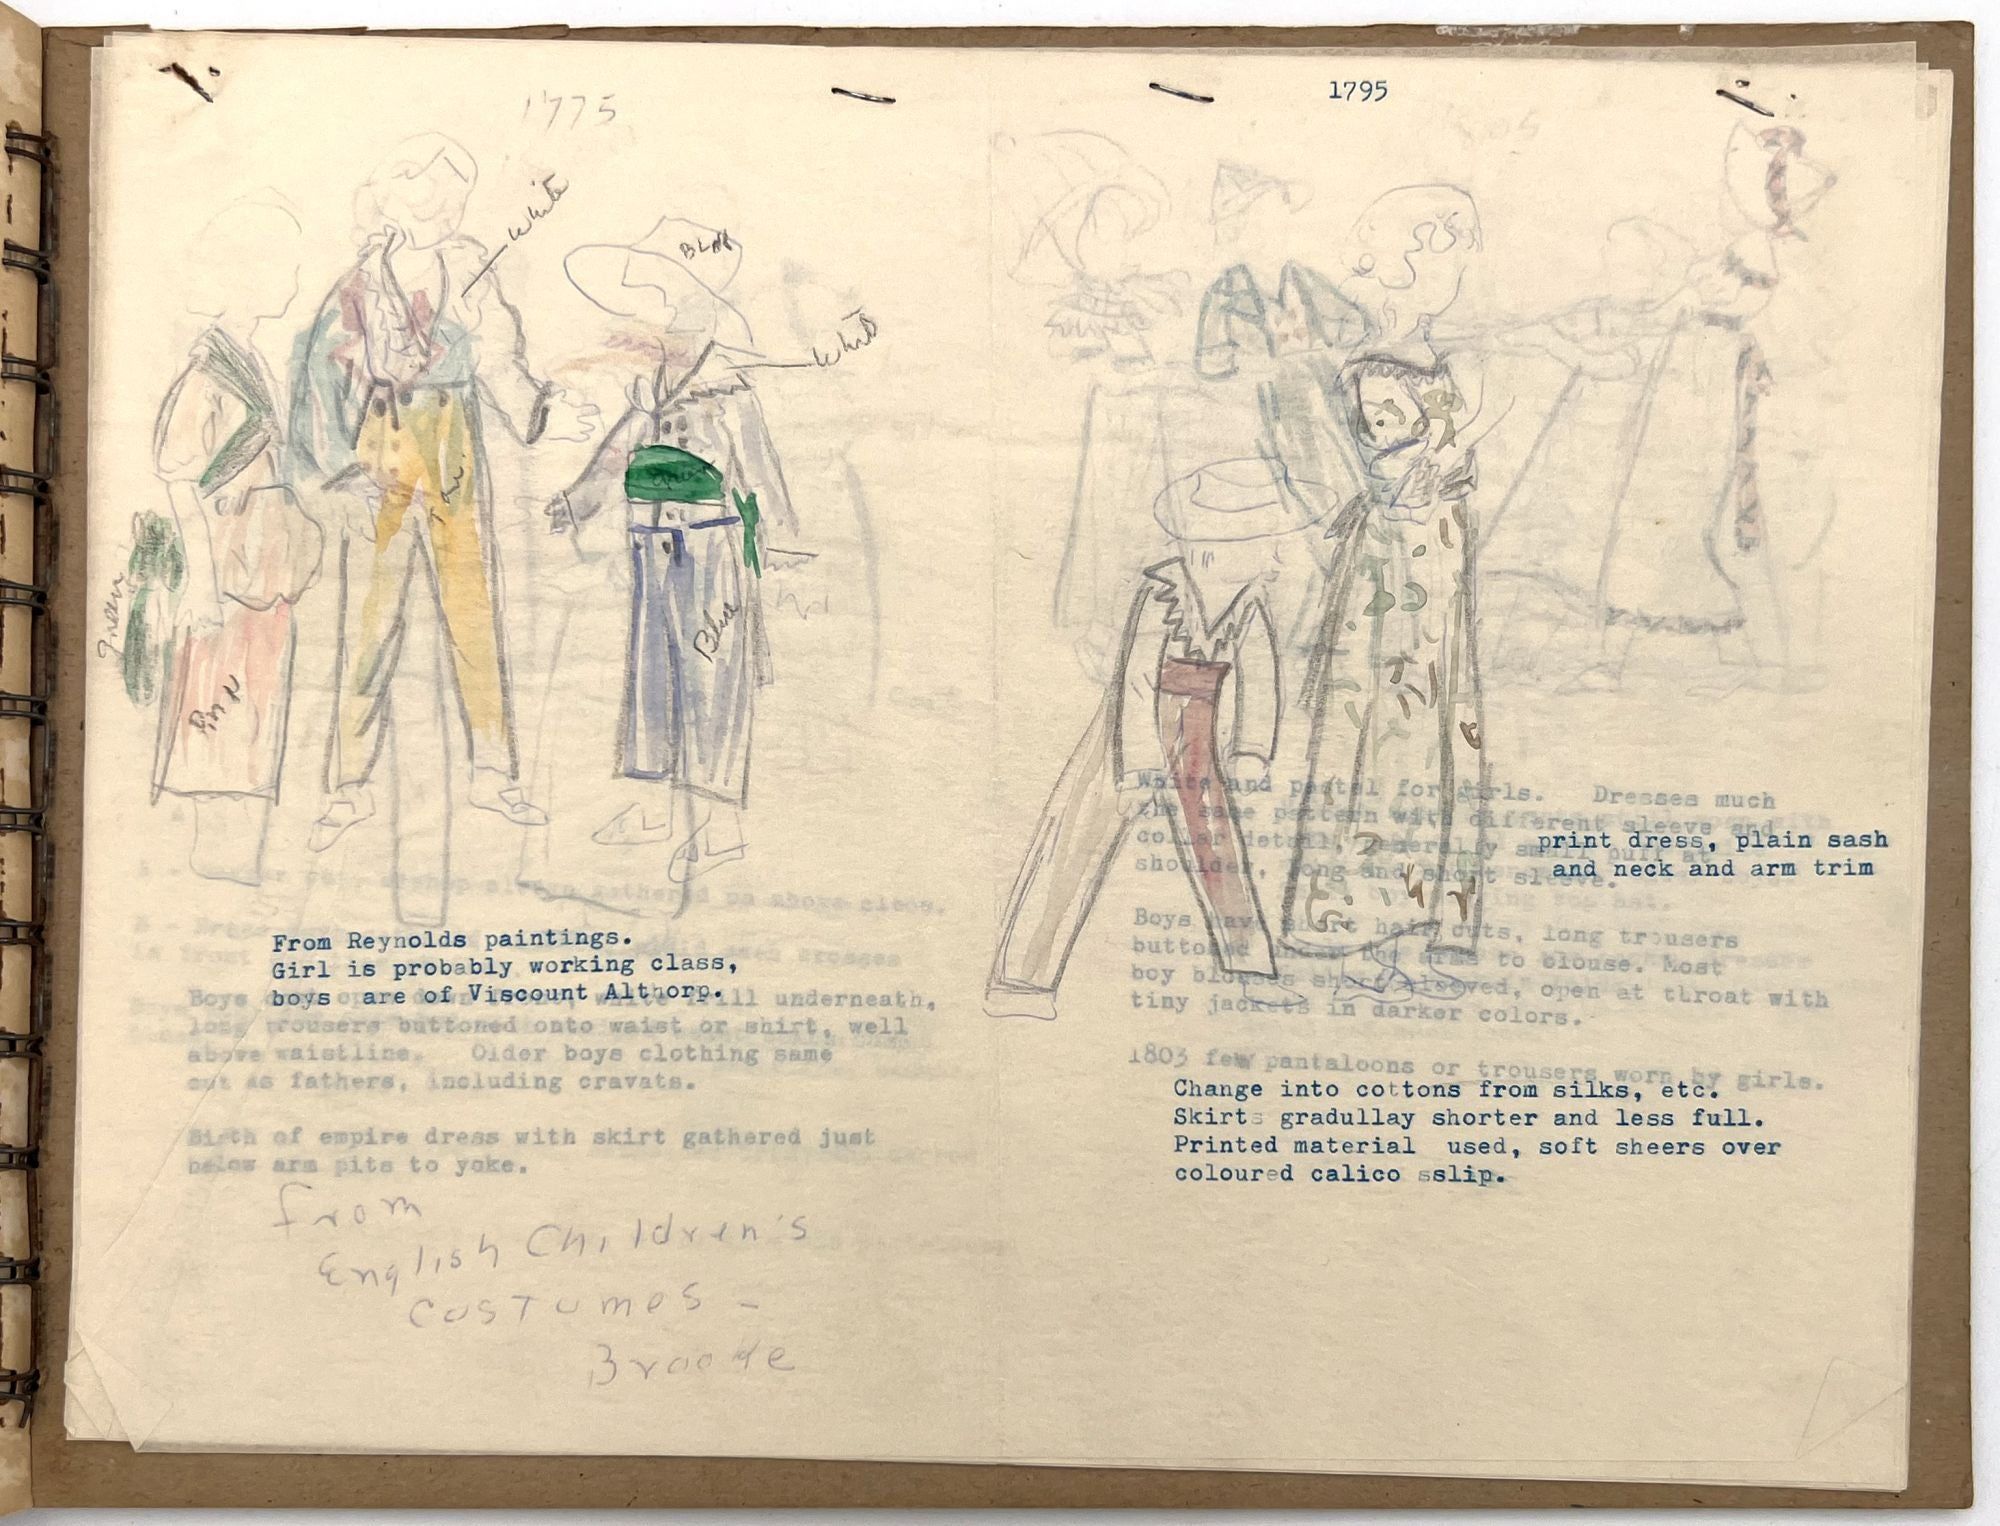 1775
White
BLAK
White
green
Blue
green
Pink
From Reynolds paintings.
Girl is probably working class,
boys are of Viscount Althorp.
long trousers buttoned onto waist or shirt, well
above waistline. Older boys clothing same
cut as fathers, including cravats.
Birth of empire dress with skirt gathered just
below arm pits to yoke.
from
English Children's
Costumes -
Brooke
1795
White and pastel for girls. Dresses much
the same pattern with different sleeve and
collar detail, generally small puff at
shoulder, long and short sleeve.
print dress, plain sash
and neck and arm trim
Boys have short hair cuts, long trousers
buttoned under the arms to blouse. Most
boy blouses short sleeved, open at throat with
tiny jackets in darker colors.
1803 few pantaloons or trousers worn by girls.
Change into cottons from silks, etc.
Skirts gradullay shorter and less full.
Printed material used, soft sheers over
coloured calico sslip.